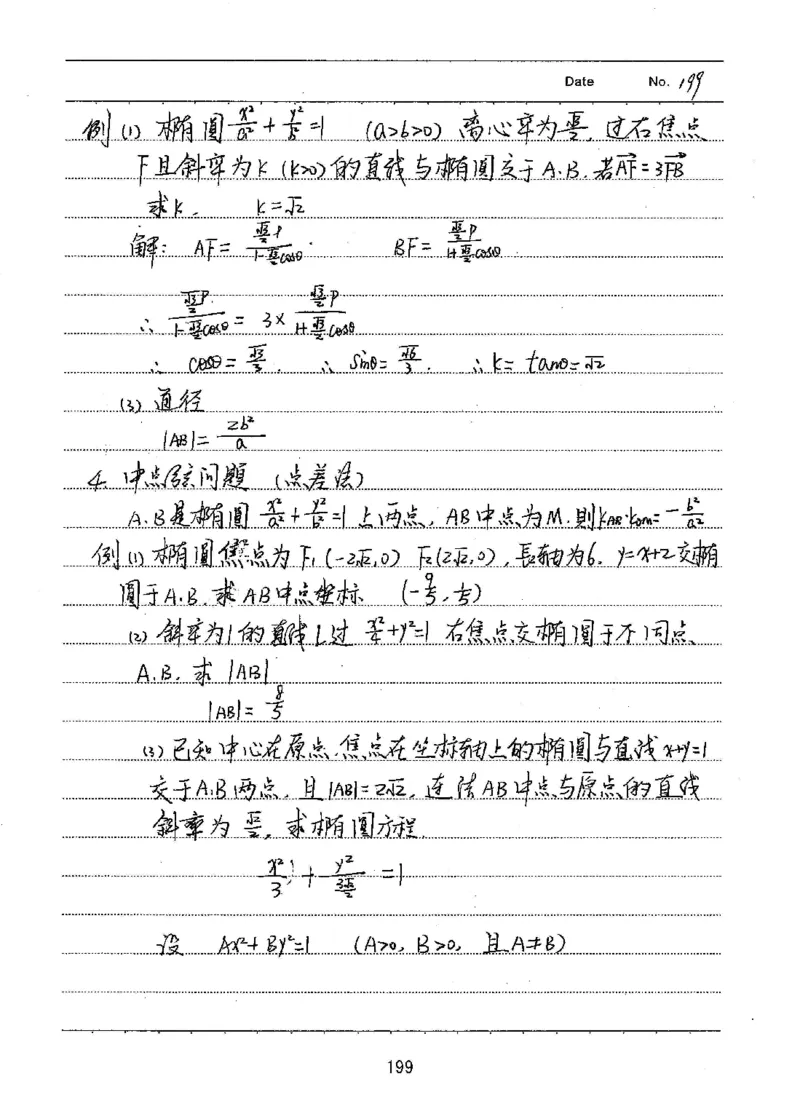 Date No. 199
例(1) 椭圆 x²/a² + y²/b² =1 (a>b>0) 离心率为 √3/2, 过右焦点
F且斜率为k (k>0)的直线与椭圆交于A.B. 若AF→=3FB→
求k. k=√2
解: AF= (√3/2)p/(1-(√3/2)cosθ). BF= (√3/2)p/(1+(√3/2)cosθ).
∴ (√3/2)p/(1-(√3/2)cosθ) = 3× (√3/2)p/(1+(√3/2)cosθ)
∴ cosθ= √3/3. ∴ sinθ= √6/3. ∴k= tanθ=√2
(3) 通径
|AB|= 2b²/a
4. 中点弦问题 (点差法)
A.B是椭圆 x²/a² + y²/b² =1 上两点, AB中点为M.则k_AB·k_OM= -b²/a²
例(1) 椭圆焦点为F₁(-2√2,0) F₂(2√2,0), 長轴为6. y=x+2交椭
圆于A.B. 求AB中点坐标 (-9/5, 1/5)
(2) 斜率为1的直线L过 x²/4+y²=1 右焦点交椭圆于不同点、
A.B. 求 |AB|
|AB|= 8/5
(3) 已知中心在原点,焦点在坐标轴上的椭圆与直线x+y=1
交于A.B两点, 且|AB|=2√2, 连结AB中点与原点的直线
斜率为 √2/2, 求椭圆方程.
x²/3 + y²/(3√2/2) =1
设 Ax²+By²=1 (A>0, B>0, 且A≠B)
199